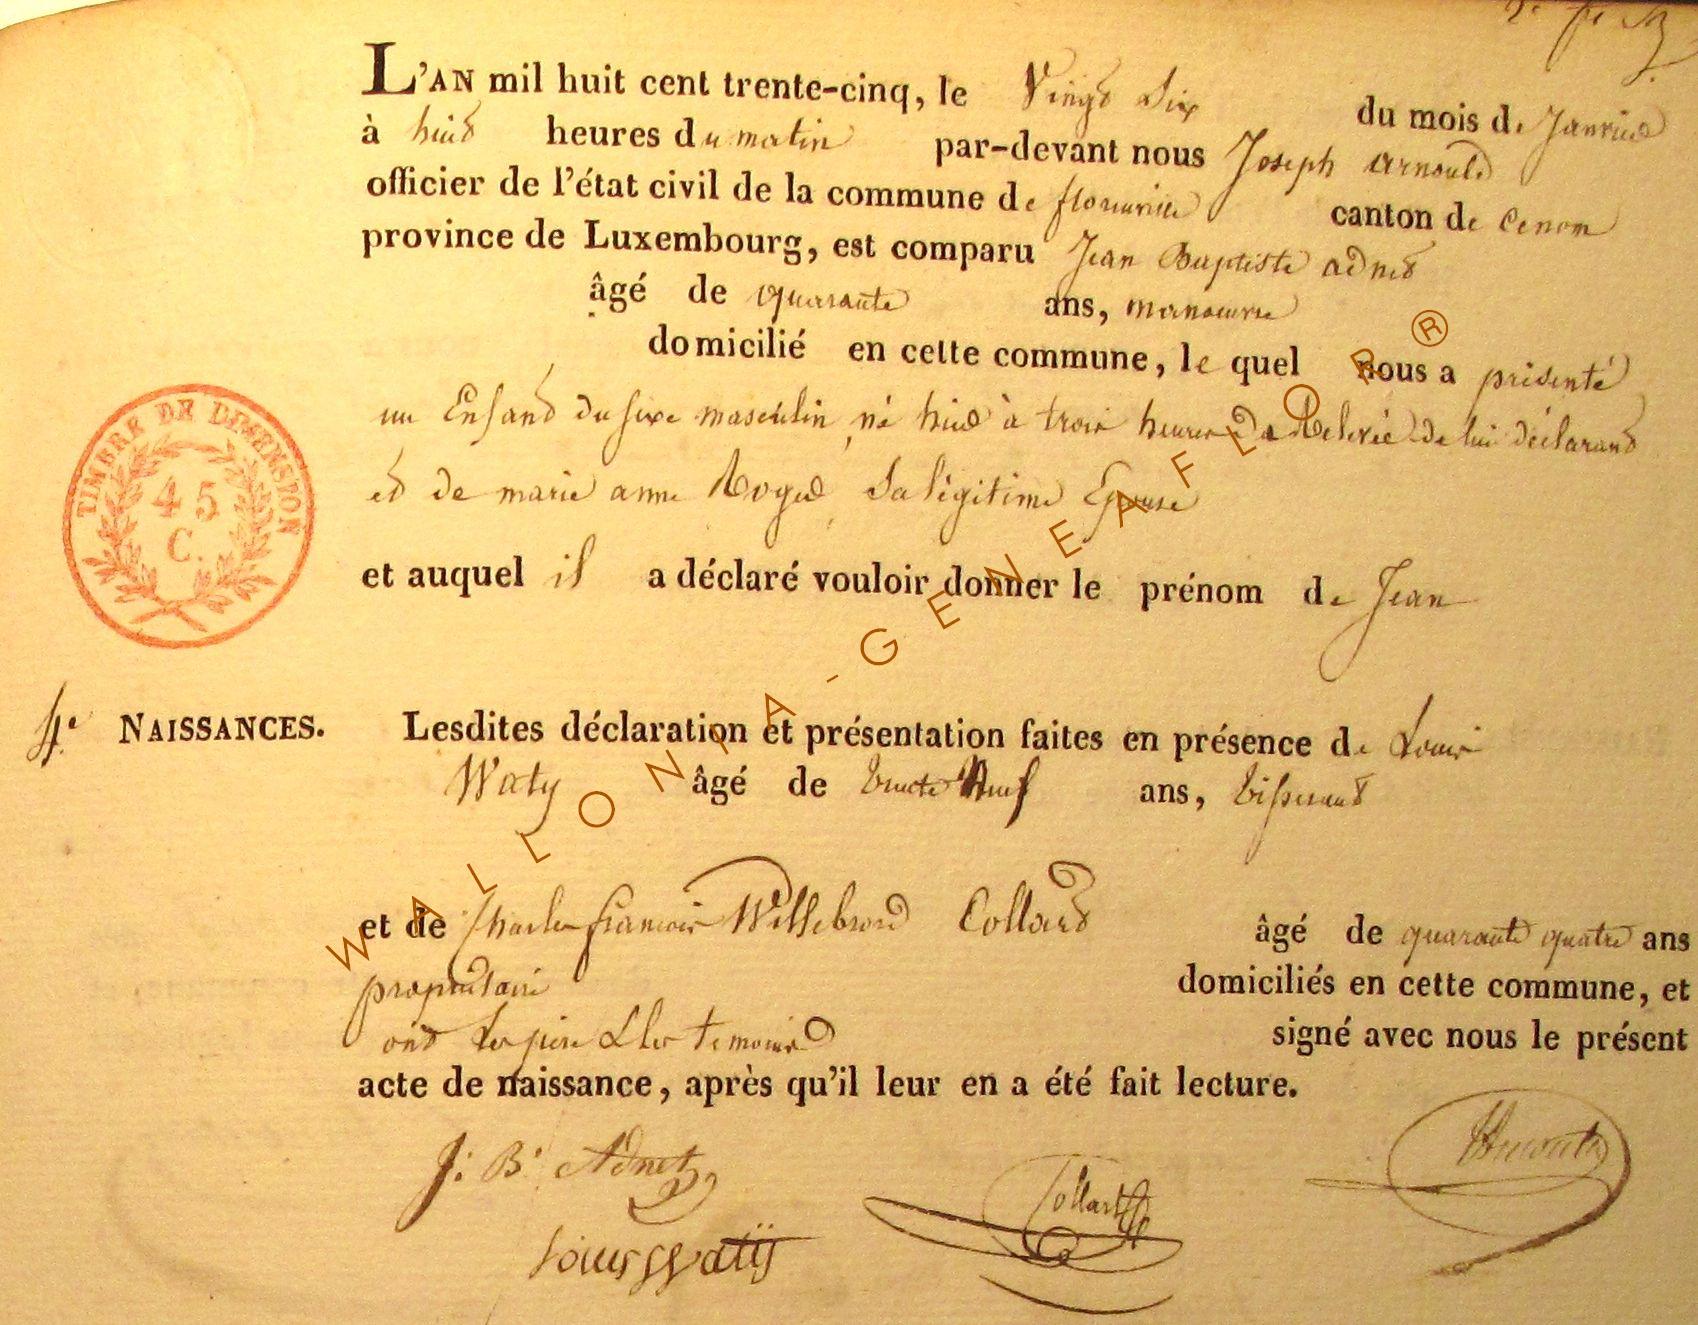 L'AN mil huit cent trente-cinq, le Vingt Six du mois de Janvier
à huit heures du matin par-devant nous Joseph arnould
officier de l'état civil de la commune de florenville canton de
province de Luxembourg, est comparu Jean Baptiste adnet
âgé de quarante ans, manoeuvre
domicilié en cette commune, le quel nous a présenté
un Enfant du sexe masculin, né hier à trois heures de Relevée de lui déclarant
et de marie anne Roger, Sa légitime Epouse
et auquel il a déclaré vouloir donner le prénom de Jean
TIMBRE DE DIMENSION
45
C.
4e NAISSANCES. Lesdites déclaration et présentation faites en présence de Louis
Waty âgé de trente Neuf ans, tisserand
et de Charles françois Willebrord Collard âgé de quarante quatre ans
propriétaire domiciliés en cette commune, et
ont les père & les témoins signé avec nous le présent
acte de naissance, après qu'il leur en a été fait lecture.
J: B: Adnet
Collart
Louis Watÿ
WALLONIA-GENEAFLOR ®